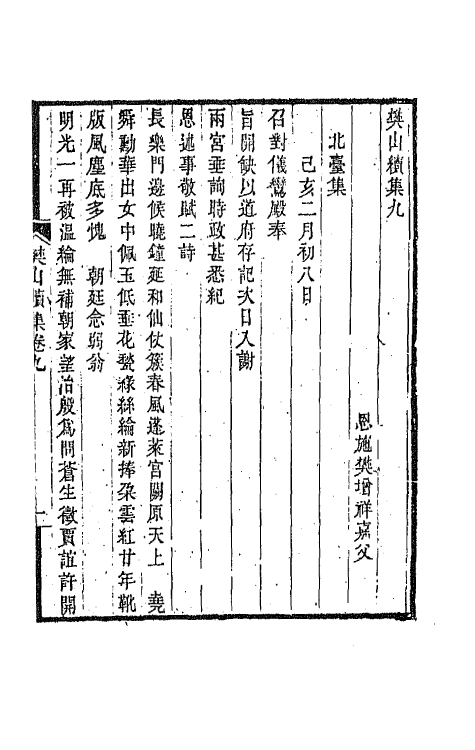 樊山續集九
恩施樊增祥嘉父
北臺集
己亥二月初八日
召對儀鸞殿奉
旨開缺以道府存記次日入謝
兩宮垂詢時政甚悉紀
恩述事敬賦二詩
長樂門邊候曉鐘延和仙仗簇春風蓬萊宮闕原天上　堯
舜勳華出女中佩玉低垂花甃綠絲綸新捧朶雲紅廿年靴
版風塵底多愧　朝廷念弱翁
明光一再被溫綸無補朝家望治殷爲問蒼生徵賈誼許開
樊山續集卷九
一